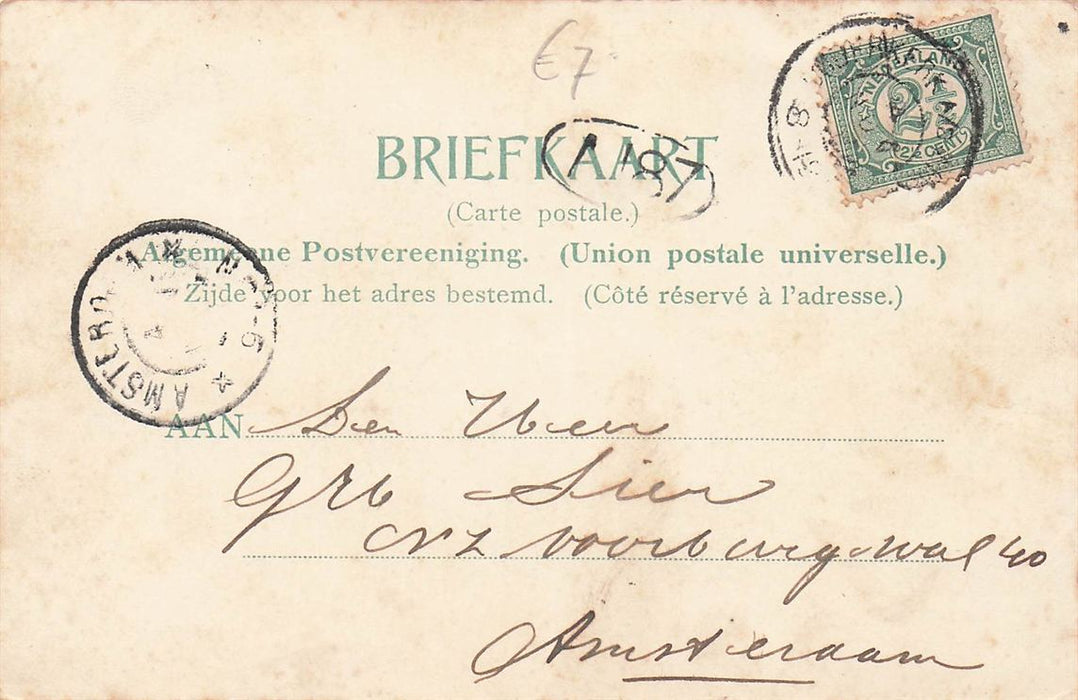 €7
NEDERLAND
2½
2½ CENT
BRIEFKAART
(Carte postale.)
Algemeene Postvereeniging. (Union postale universelle.)
Zijde voor het adres bestemd. (Côté réservé à l'adresse.)
AMSTERDAM
5-6 N
AAN Den Heer
Sier
NZ Voorburgwal 40
Amsterdaam